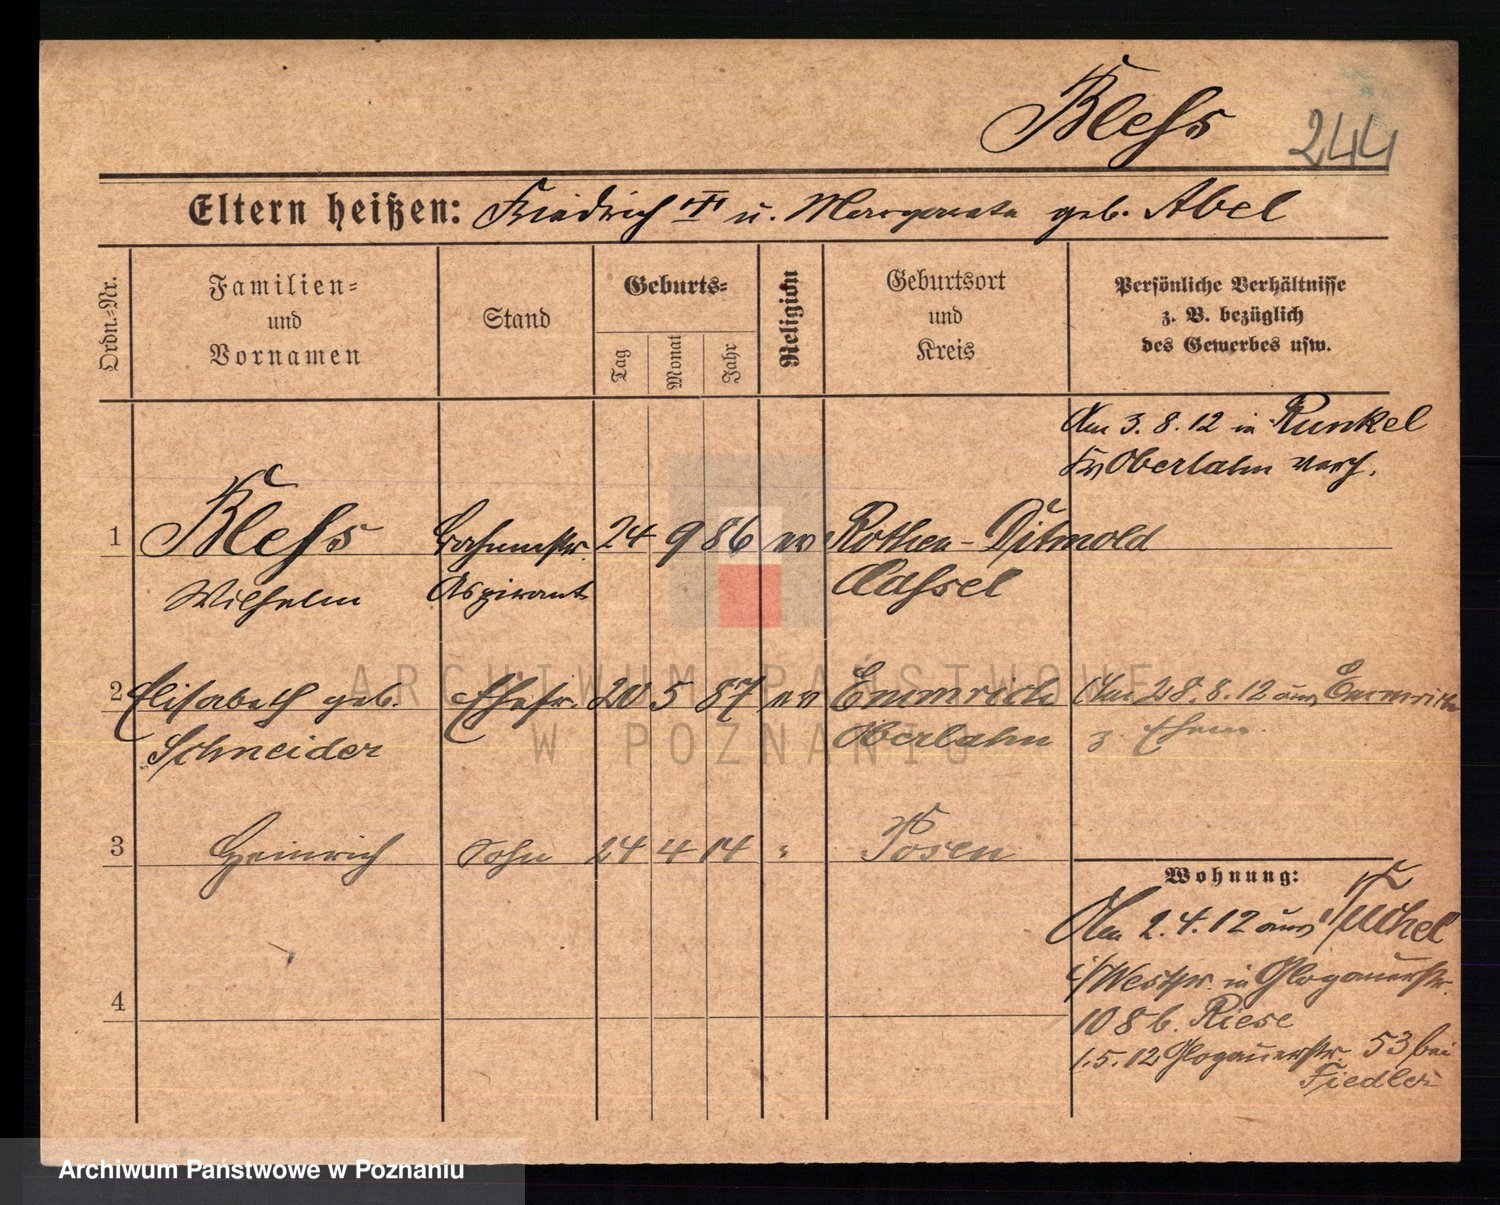 Bless
244
Eltern heißen: Friedrich ✝ u. Margareta geb. Abel
Ordn.-Nr.
Familien-
und
Vornamen
Stand
Geburts-
Tag
Monat
Jahr
Religion
Geburtsort
und
Kreis
Persönliche Verhältnisse
z. B. bezüglich
des Gewerbes usw.
Am 3.8.12 in Runkel
Kr Oberlahn verh.
1 Bless 24 9 86 ev Rothen-Ditmold
Wilhelm Aspirant Cassel
2 Elisabeth geb. Ehefr. 20 5 87 ev Emmrich Am 28.8.12 aus Emmrich
Schneider Oberlahn z. Ehem.
3 Heinrich Sohn 24 4 14 " Posen
4
Wohnung:
Am 2.4.12 aus Tuchel
i/Westpr. in Glogauerstr.
108 b. Riese
1.5.12 Glogauerstr. 53 bei
Fiedler
ARCHIWUM PAŃSTWOWE
W POZNANIU
Archiwum Państwowe w Poznaniu